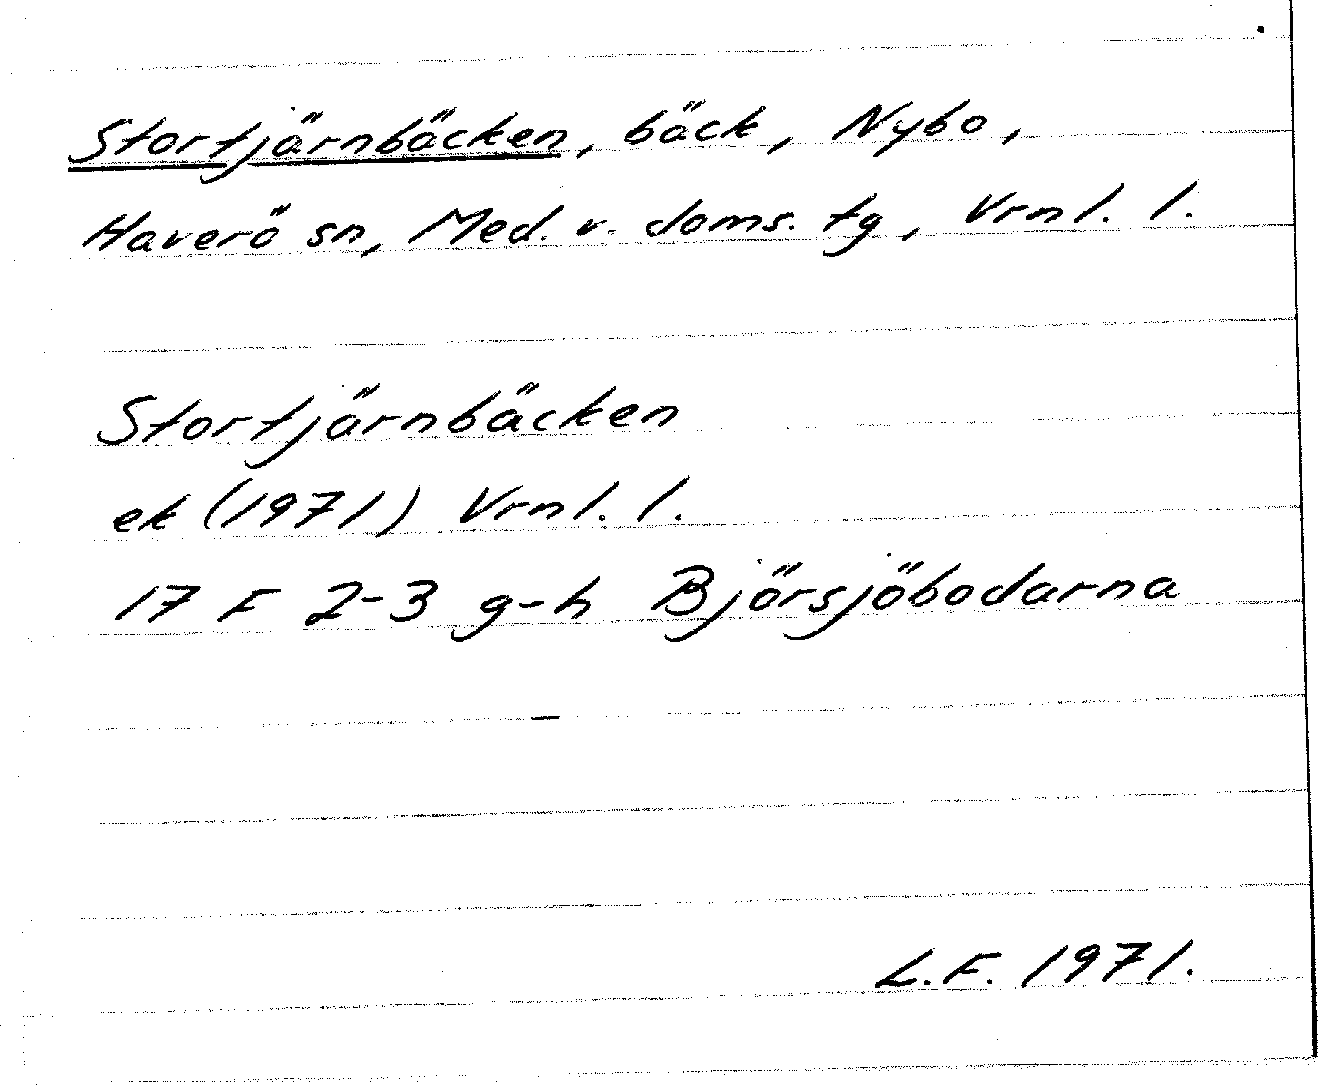 Stortjärnbäcken, bäck, Nybo,
Haverö sn, Med. v. doms. tg, Vrnl. l.
Stortjärnbäcken
ek (1971) Vrnl. l.
17 F 2-3 g-h Björsjöbodarna
L.F. 1971.